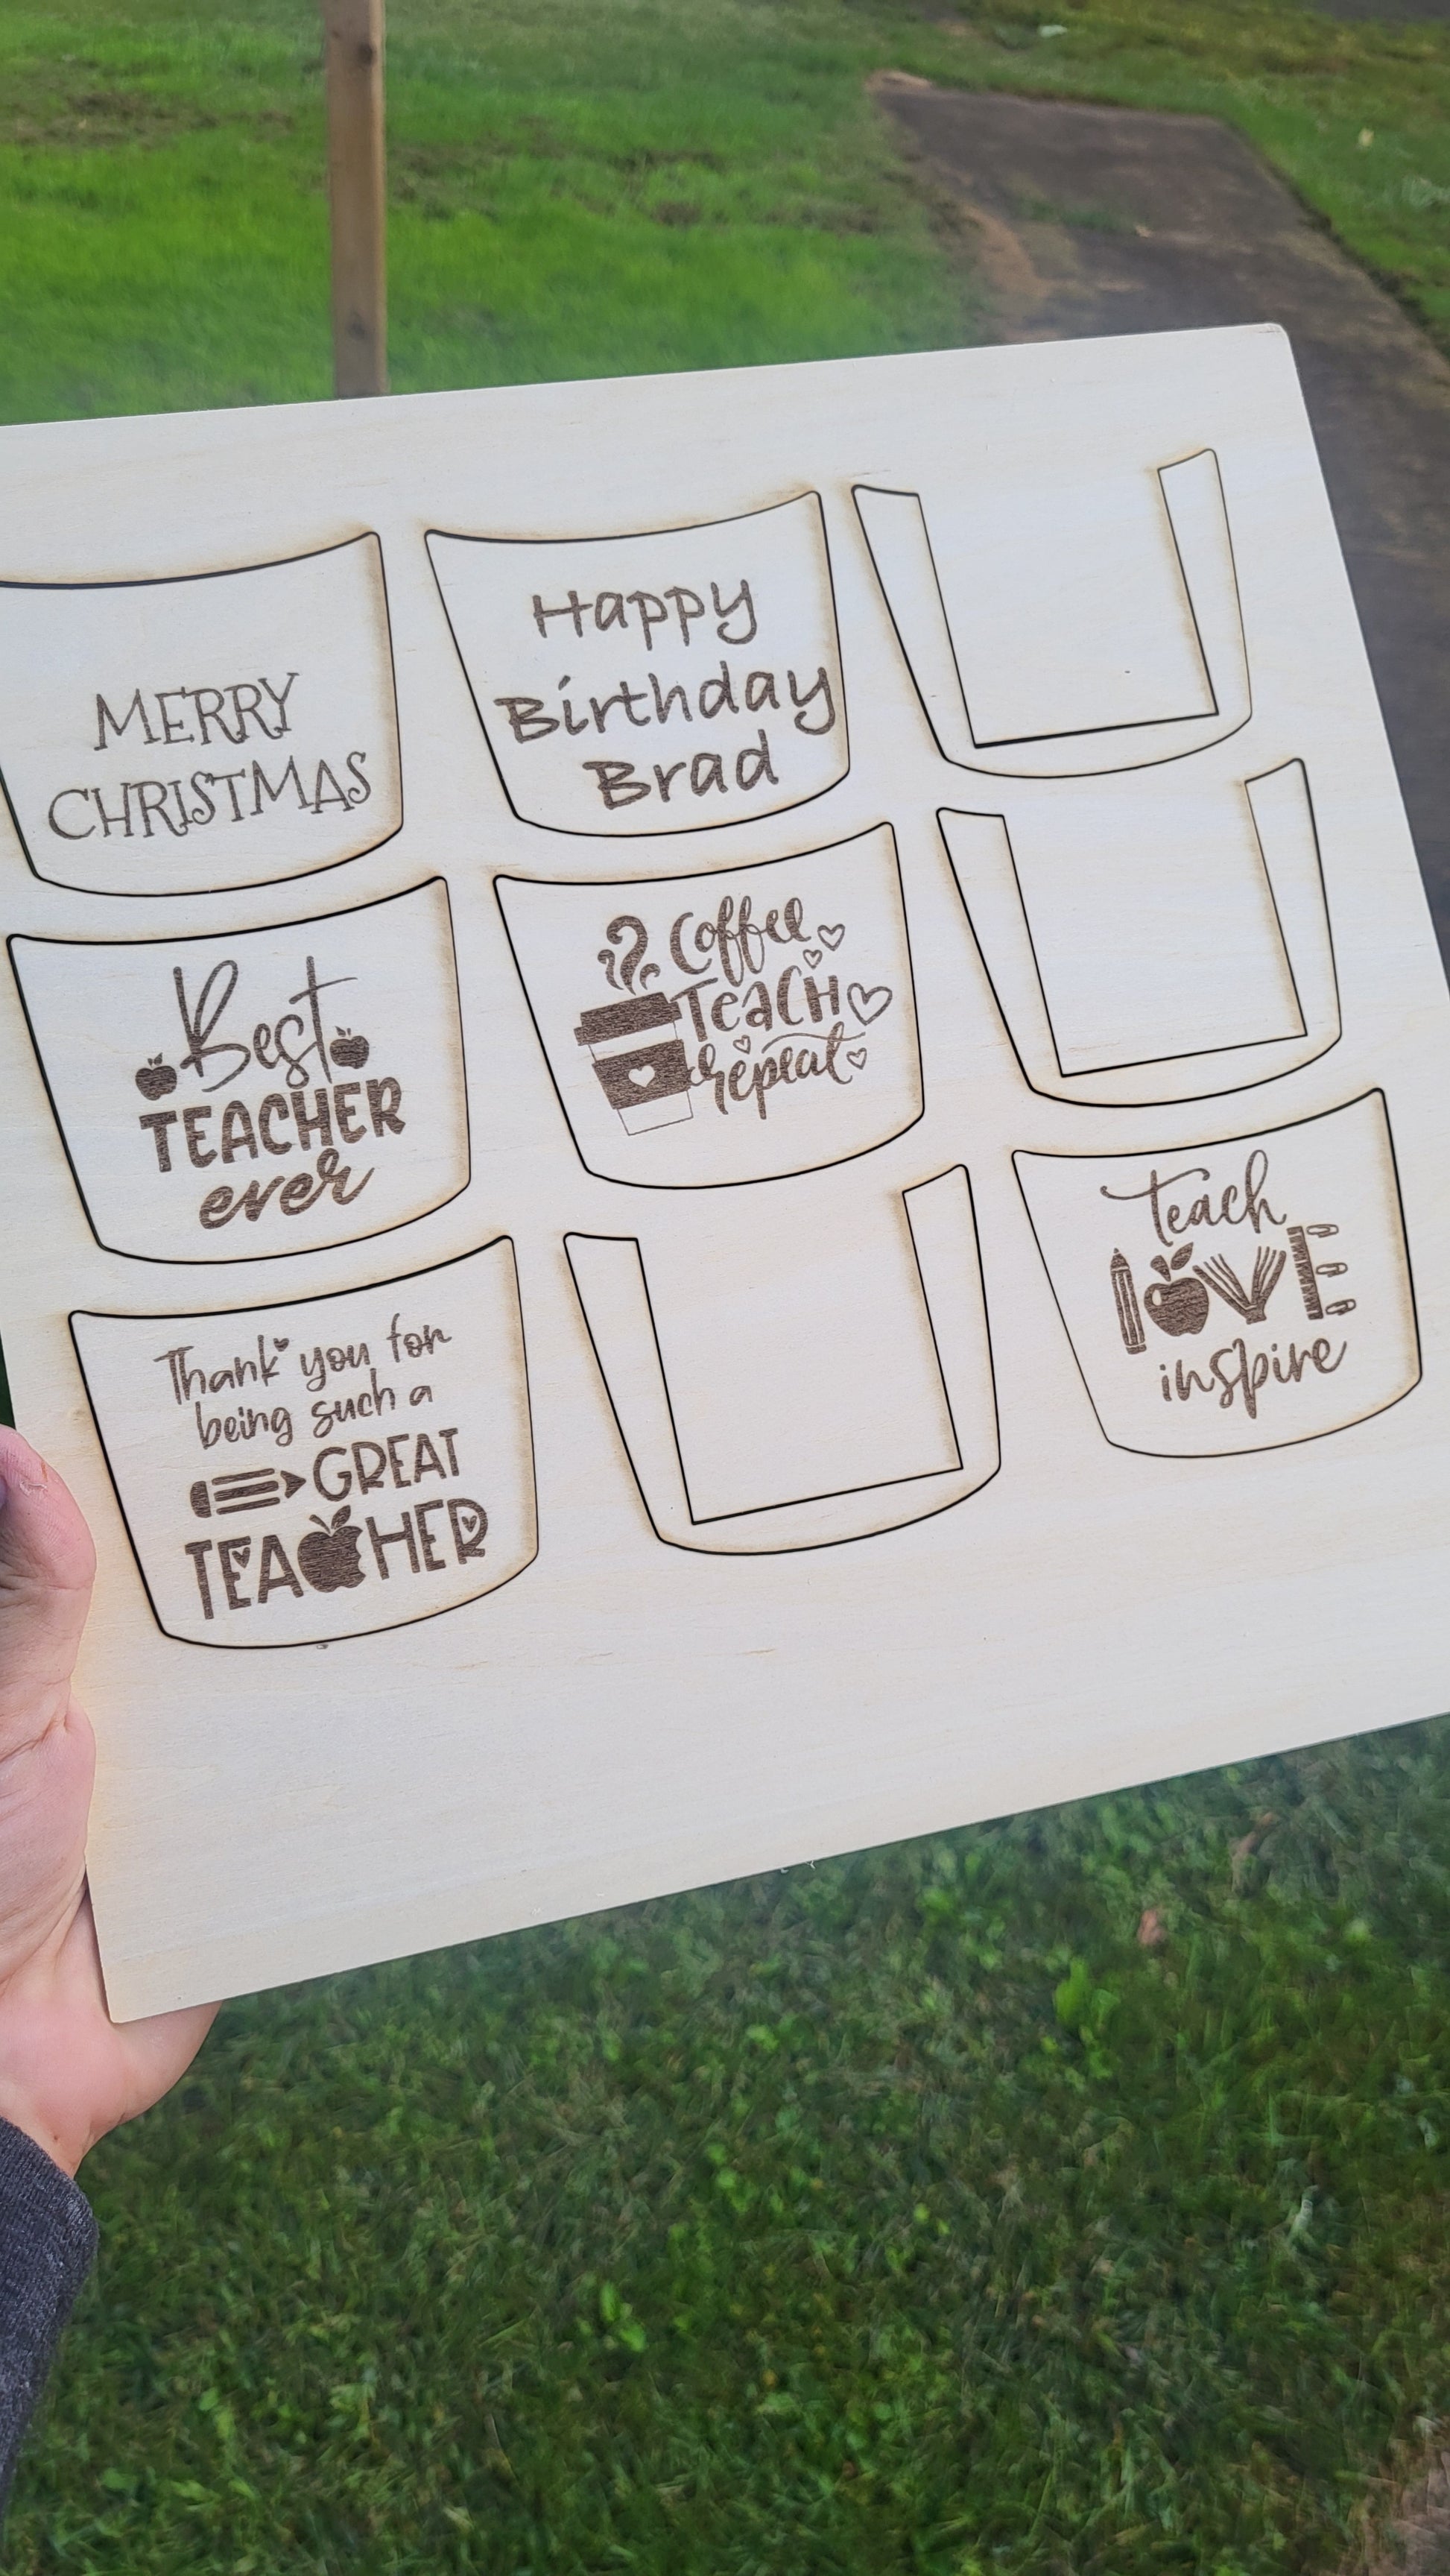 MERRY
CHRISTMAS
Happy
Birthday
Brad
Best
TEACHER
ever
Coffee
TEACH
repeat
Thank you for
being such a
GREAT
TEACHER
teach
LOVE
inspire